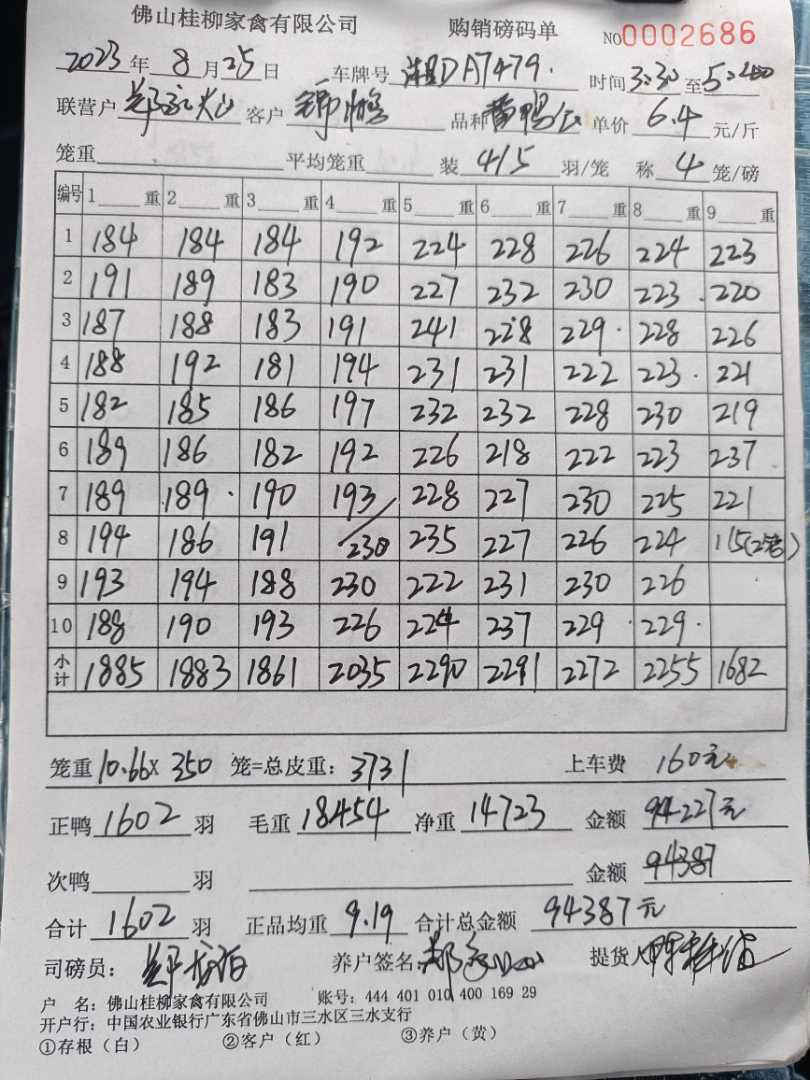 佛山桂柳家禽有限公司 购销磅码单 NO0002686
2023年 8月25日 车牌号 湘DA7479. 时间3:30至5:40
联营户 客户 锦鹏 品种 黄鸭公 单价 6.4 元/斤
笼重 平均笼重 装 4/5 羽/笼 称 4 笼/磅
编号 1 重 2 重 3 重 4 重 5 重 6 重 7 重 8 重 9 重
1 184 184 184 192 224 228 226 224 223
2 191 189 183 190 227 232 230 223 220
3 187 188 183 191 241 228 229 228 226
4 188 192 181 194 231 231 222 223 221
5 182 185 186 197 232 232 228 230 219
6 189 186 182 192 226 218 222 223 237
7 189 189 190 193 228 227 230 225 221
8 194 186 191 230 235 227 226 224 115(2笼)
9 193 194 188 230 222 231 230 226
10 188 190 193 226 224 237 229 229
小计 1885 1883 1861 2035 2290 2291 2272 2255 1682
笼重 10.66× 350 笼=总皮重: 3731 上车费 160元
正鸭 1602 羽 毛重 18454 净重 14723 金额 94227元
次鸭 羽 金额 94387
合计 1602 羽 正品均重 9.19 合计总金额 94387元
司磅员: 养户签名: 提货人
户 名: 佛山桂柳家禽有限公司 账号: 444 401 010 400 169 29
开户行: 中国农业银行广东省佛山市三水区三水支行
①存根(白) ②客户(红) ③养户(黄)